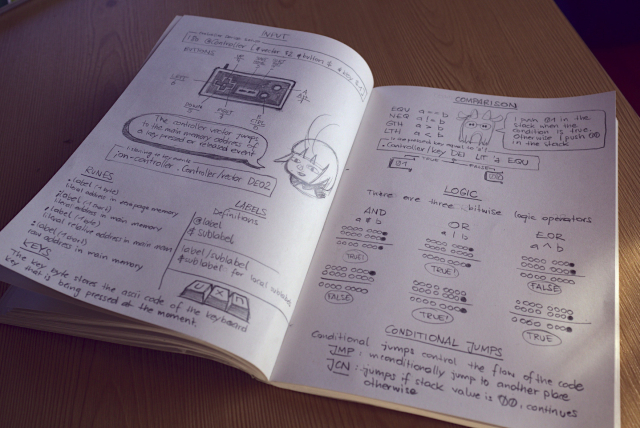 INPUT
|80 @Controller [ &vector $2 &button $1 &key $1 ]
BUTTONS
The controller vector jumps
to the main memory address of
a key pressed or released event.
;on-controller .Controller/vector DEO2
RUNES
literal address in zero page memory
literal address in main memory
literal relative address in main memory
raw address in main memory
LABELS
Definitions
@label
& sublabel
label/sublabel
&sublabel for local sublabels
KEYS
The key byte stores the ascii code of the keyboard
key that is being pressed at the moment.
U X N
COMPARISON
EQU a == b
NEQ a != b
GTH a > b
LTH a < b
I push 01 in the
stack when the
condition is true.
Otherwise I push 00
in the stack
.Controller/key DEI LIT 'a EQU
01
00
LOGIC
There are three bitwise logic operators
AND
a & b
OR
a | b
EOR
a ^ b
TRUE!
TRUE!
FALSE
FALSE
TRUE!
TRUE
CONDITIONAL JUMPS
Conditional jumps control the flow of the code
JMP: unconditionally jump to another place
JCN: jumps if stack value is 00, continues
otherwise